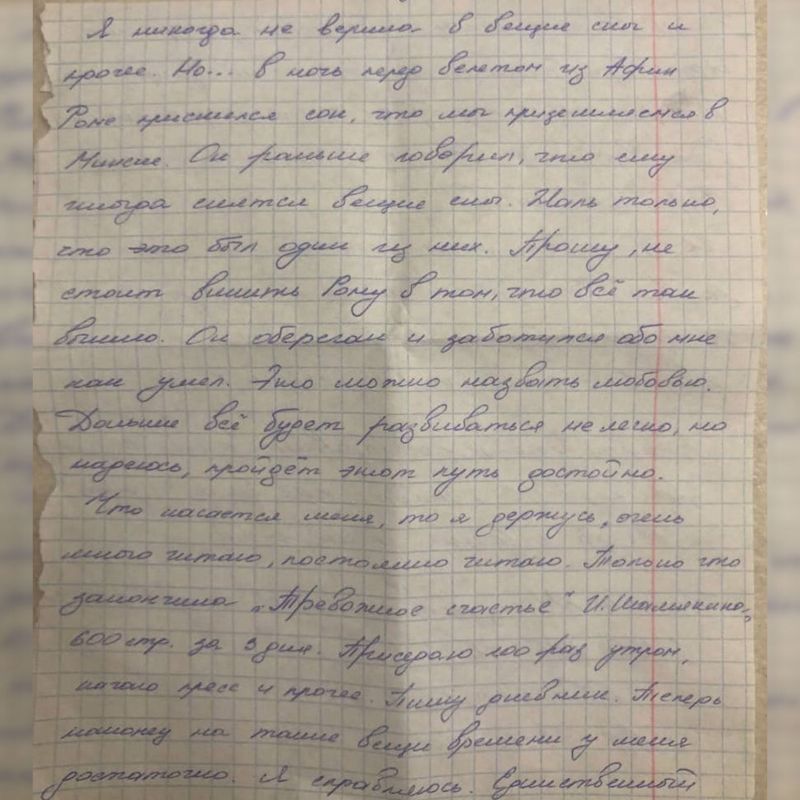 Я никогда не верила в вещие сны и
прочее. Но... в ночь перед вылетом из Афин
Роме приснился сон, что мы приземляемся в
Минске. Он раньше говорил, что ему
иногда снятся вещие сны. Жаль только,
что это был один из них. Прошу, не
стоит винить Рому в том, что всё так
вышло. Он оберегал и заботился обо мне
как умел. Это можно назвать любовью.
Дальше всё будет развиваться не легко, но
надеюсь, пройдёт этот путь достойно.
Что касается меня, то я держусь, очень
много читаю, постоянно читаю. Только что
закончила „Тревожное счастье" И. Шамякина,
600 стр. за 3 дня. Приседаю 100 раз утром,
качаю пресс и прочее. Пишу дневник. Теперь
наконец на такие вещи времени у меня
достаточно. Я справляюсь. Единственный